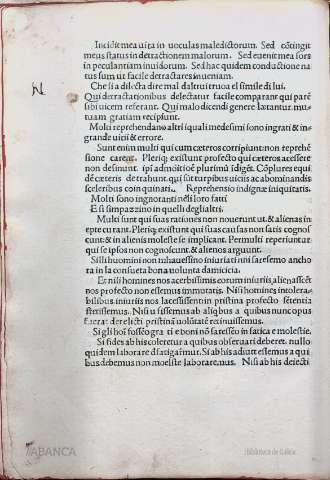 Incidit mea uita in uoculas maledictorum. Sed cōtingit
meus status in detractionem malorum. Sed euenit mea sors
in peculantiam inuidorum. Sed hac quidem conductione na
tus sum ut facile detractares inueniam.
Che si a dilecta dire mal daltrui truoua el simile di lui.
Qui detractationibus delectatur facile comparant qui parē
sibi uicem referant. Qui malo dicendi genere lætantur. mu
tuam gratiam recipiunt.
Molti reprehendano altri iquali medesimi sono ingrati & in
grande uicii & errore.
Sunt enim multi qui cum cæteros corripiunt: non reprehē
sione carent. Pleriq; existunt profecto qui cæteros accessere
non desinunt ipsi admonitiōe plurimū idigēt. Cōplures equi
dē cæteris detrahunt. qui sut turpibus uiciis ac abominandis
sceleribus coinquinati. Reprehensio indignæ iniquitatis.
Molti sono ingnoranti nelsi loro fatti
E si simpazzino in quelli deglialtri.
Multi sunt qui suas rationes non nouerunt ut & alienas in
epte currant. Pleriq; existunt qui suas causas non satis cognos
cunt: & in alienis moleste se implicant. Permulti reperiuntur
qui se ipsos non cognoscunt. & alienos arguunt.
Si li huomini non mhauessino iniuriati nni saresemo ancho
ra in la consueta bona uolunta damicicia.
Et nisi homines nos acerbissimis eorum iniuriis alienassēt
nos profecto non essemus immoratis. Nisi homines intolera
bilibus iniuriis nos lacessissent in pristina profecto sētentia
stetissemus. Nisi u fissemus ab aliqbus a quibus nuncopus
fuerat derelicti pristinā uolūtatē retinuissemus.
Si gli hoī fosseo gra ti e boni nō saresseo in fatica e molestie.
Si fides ab his coleretur a quibus obseruari deberet. nullo
quidem laborare dfatigaſmur. Si ab his adiuti essemus a qui
bus debemus non moleste laboraremus. Nisi ab his deiecti
ABANCA
Biblioteca de Galicia